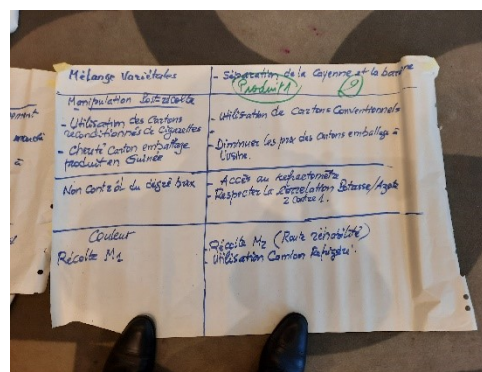 Mélange Variétales
- Séparation de la Cayenne et la baronne
Produit 1
2
Manipulation Post-récolte
- Utilisation des Cartons
reconditionnés de Cigarettes
- Cherté Carton emballage
produit en Guinée
- Utilisation de Cartons Conventionnels
- Diminuer les prix des Cartons emballage à
l'usine.
Non Contrôl du dégré brix
- Accès au Refractomètre
- Respecter la Correlation Potasse/Azote
2 Contre 1.
Couleur
Récolte M1
- Récolte M2 (Route réhabilité)
- Utilisation Camion Refrigéré.